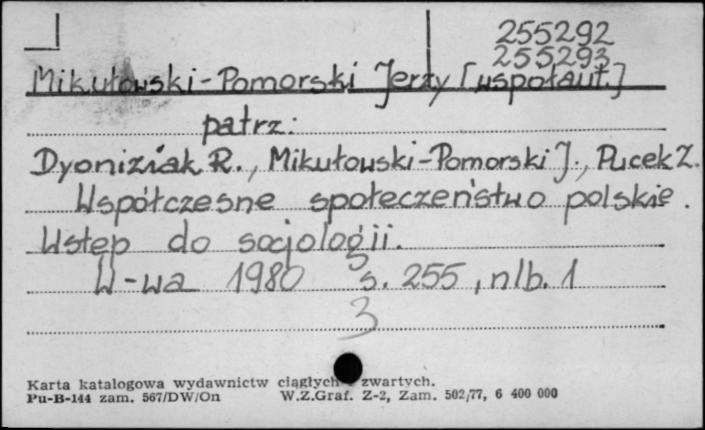 255292
255293
Mikułowski-Pomorski Jerzy [współaut.]
patrz:
Dyoniziak R., Mikułowski-Pomorski J., Pucek Z.
Współczesne społeczeństwo polskie.
Wstęp do socjologii.
W-wa 1980 s. 255, nlb. 1
3
Karta katalogowa wydawnictw ciągłych zwartych.
Pu-B-144 zam. 567/DW/On W.Z.Graf. Z-2, Zam. 502/77, 6 400 000